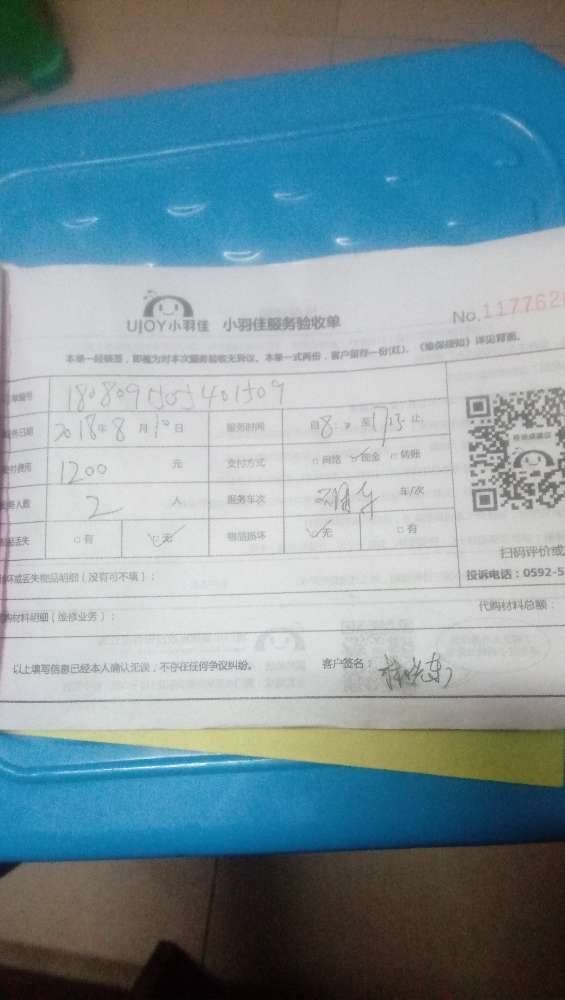 UJOY小羽佳 小羽佳服务验收单 No.117762
本单一经填签，即视为对本次服务验收无异议。本单一式两份，客户留存一份(红)。《维保须知》详见背面。
1808091505401509
2018年8月10日 服务时间 自8: 至17:25止
1200元 支付方式 □网络 ☑现金 □转账
2人 服务车次 车/次
丢失 □有 ☑无 物品损坏 ☑无 □有
坏或丢失物品明细（没有可不填）：
扫码评价或
投诉电话：0592-5
购材料明细（维修业务）： 代购材料总额：
以上填写信息已经本人确认无误，不存在任何争议纠纷。 客户签名：